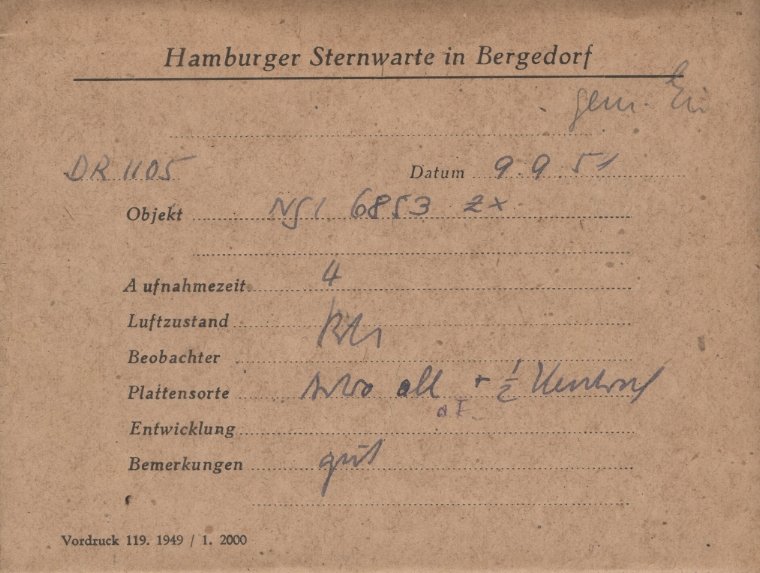 Hamburger Sternwarte in Bergedorf
gem.
DR 1105 Datum 9.9.51
Objekt 6853 2x
Aufnahmezeit 4
Luftzustand
Beobachter
Plattensorte + 1/2
Entwicklung
Bemerkungen gut
Vordruck 119. 1949 / 1. 2000